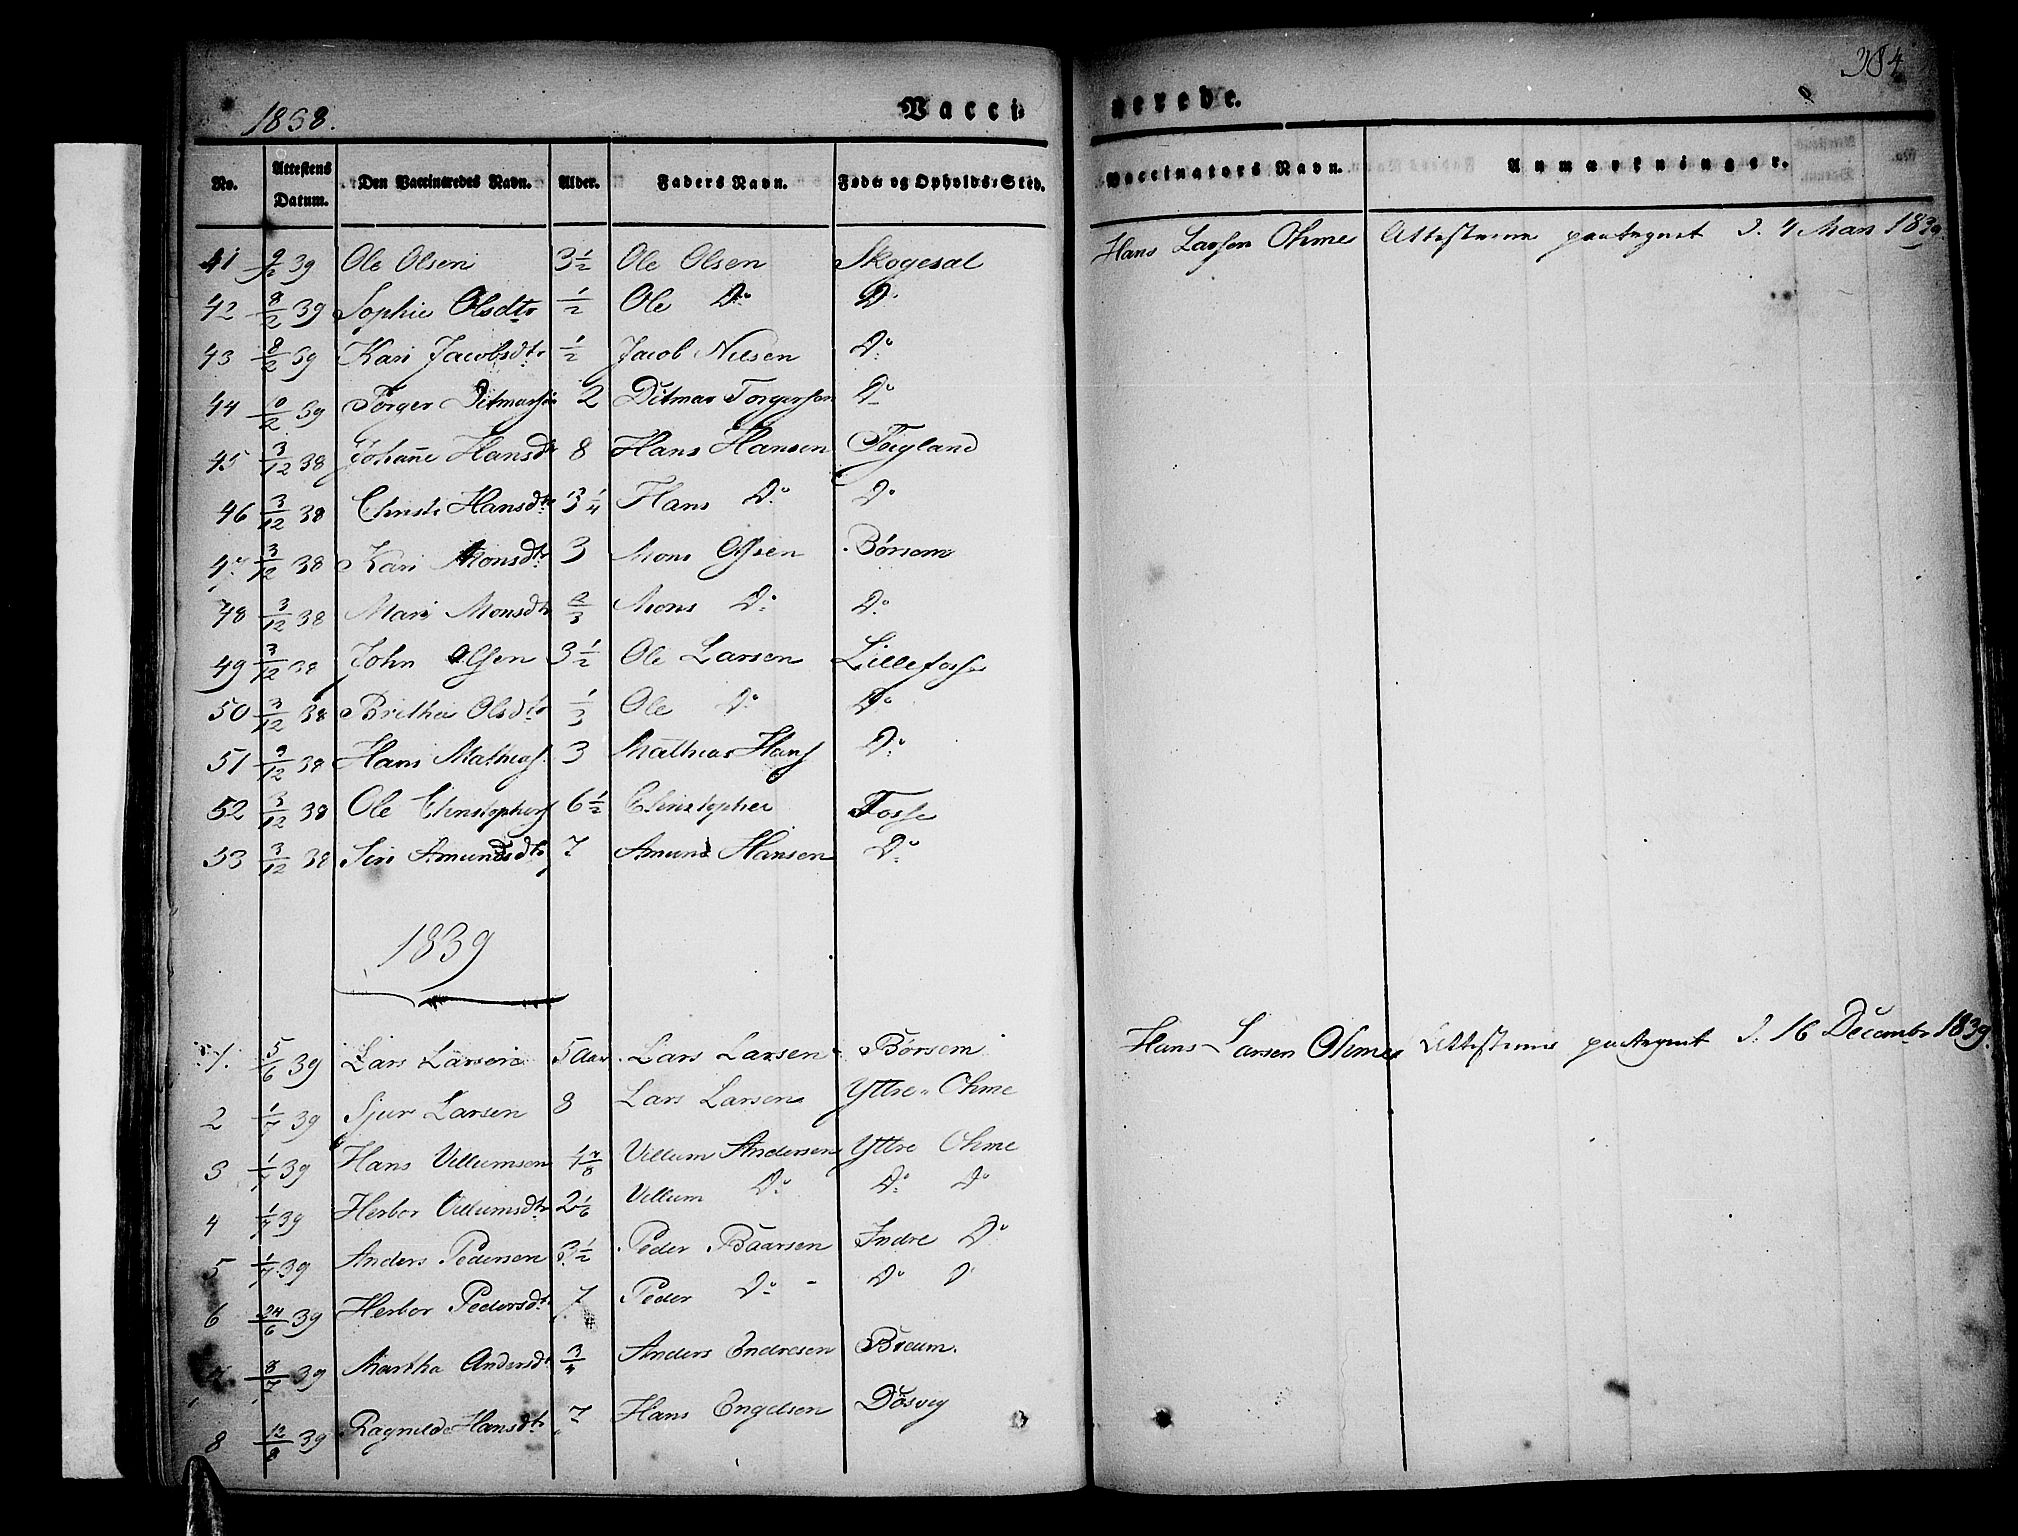 384
1838.
Vacci nerede.
No. Attestens Datum. Den Vaccineredes Navn. Alder. Faders Navn. Føde- og Opholds-Sted. Vaccinators Navn. Anmærkninger.
41 9/2 39 Ole Olsen 3 1/2 Ole Olsen Skogesal Hans Larsen Ohme Attesterne paategnet d. 4 Mars 1839.
42 8/2 39 Sophie Olsdtr 1/2 Ole Do Do
43 8/2 39 Kari Jacobsdtr 1/2 Jacob Nilsen Do
44 10/2 39 Torger Ditmarsen 2 Ditmar Torgersen Do
45 3/12 38 Johanne Hansdr 8 Hans Hansen Teigland
46 3/12 38 Christi Hansdtr 3 1/4 Hans Do Do
47 3/12 38 Kari Monsdtr 3 Mons Olsen Børsem
48 3/12 38 Mari Monsdtr 2/3 Mons Do Do
49 3/12 38 John Olsen 3 1/2 Ole Larsen Lillefosse
50 3/12 38 Brithe Olsdtr 1/3 Ole Do Do
51 3/12 38 Hans Mathias. 3 Mathias Hans Do
52 3/12 38 Ole Christophers 6 1/2 Christopher Fosse
53 3/12 38 Siri Amundsdtr 7 Amund Hansen Do
1839
1. 5/6 39 Lars Larsen 5 Aar Lars Larsen Børsem Hans Larsen Ohme Attesterne paategnet d. 16 Decembr 1839.
2 1/7 39 Sjur Larsen 8 Lars Larsen Yttre Ohme
3 1/7 39 Hans Villumsen Villum Andersen Yttre Ohme
4 1/7 39 Herbor Villumsdtr 2 1/6 Villum Do Do Do
5 1/7 39 Anders Pedersen 3 1/2 Peder Baarsen Indre Do
6 24/6 39 Herbor Pedersdtr 7 Peder Do Do D
7 8/7 39 Martha Andersdt 3/4 Anders Endresen Breum.
8 12/8 39 Ragnilde Hansdtr 7 Hans Engelsen Døsvig